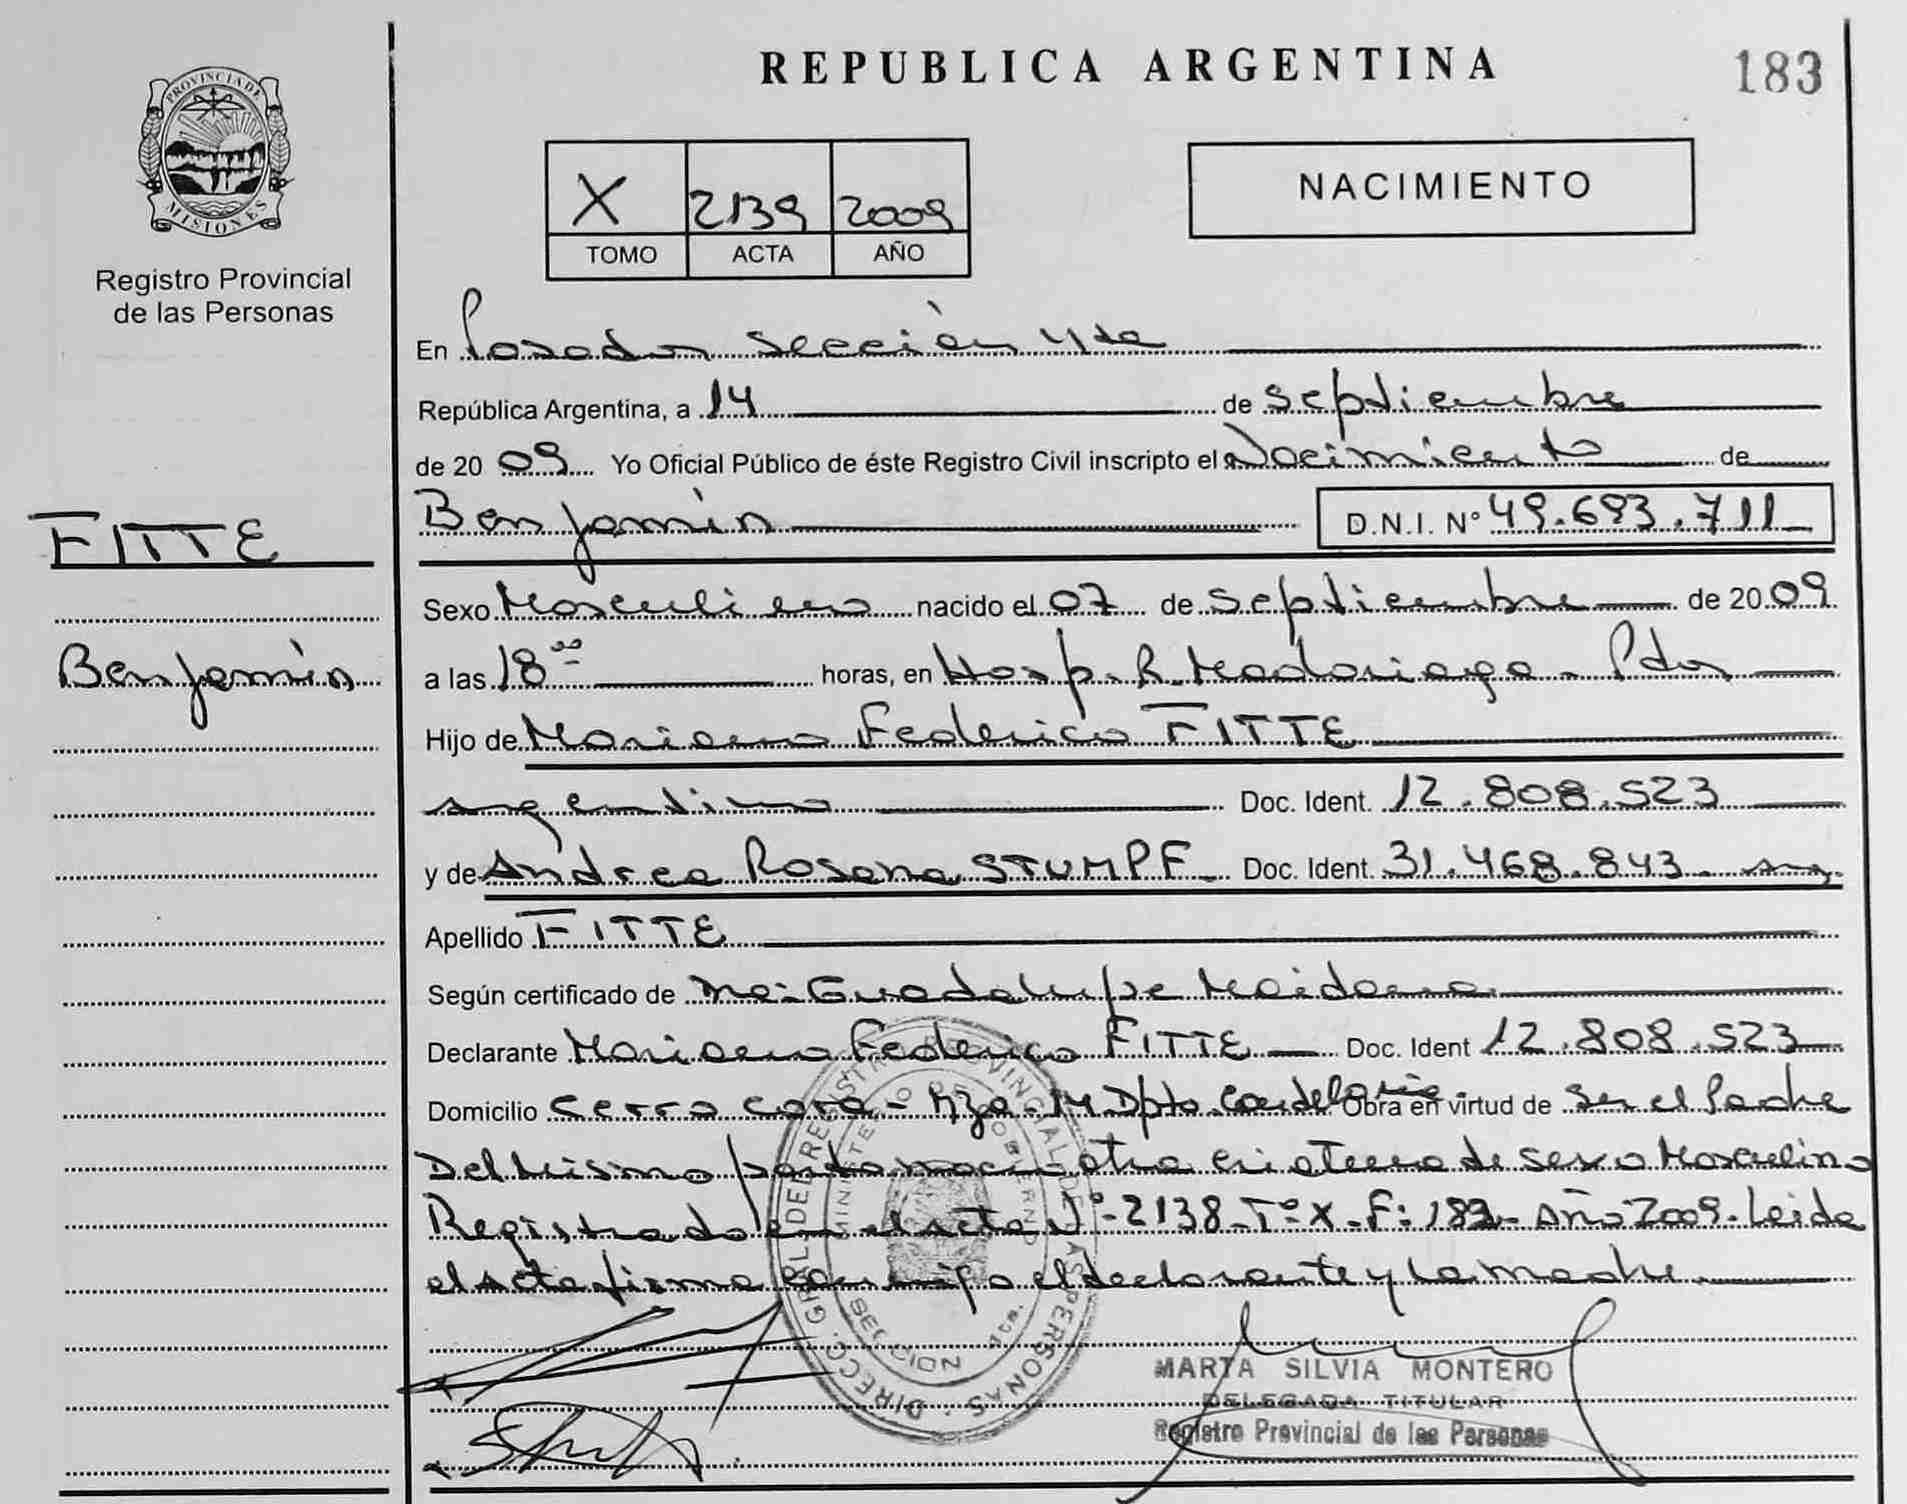 REPUBLICA ARGENTINA
183
PROVINCIA DE MISIONES
Registro Provincial
de las Personas
X 2139 2009
TOMO ACTA AÑO
NACIMIENTO
En Posadas Sección 4ta
República Argentina, a 14 de Septiembre
de 2009 Yo Oficial Público de éste Registro Civil inscripto el Nacimiento de
Benjamín D.N.I. Nº 49.693.711
FITTE
Benjamín
Sexo Masculino nacido el 07 de Septiembre de 2009
a las 18 00 horas, en Hosp. R. Madariaga - Pdas
Hijo de Mariano Federico FITTE
argentino Doc. Ident. 12.808.523
y de Andrea Rosana STUMPF Doc. Ident. 31.468.843 arg.
Apellido FITTE
Según certificado de Ma. Guadalupe Maidana
Declarante Mariano Federico FITTE Doc. Ident 12.808.523
Domicilio Cerro Corá - Mza - 14 Dpto. Candelaria Obra en virtud de Ser el Padre
Del Mismo otra criatura de sexo Masculino
Registrado en el acta Nº 2138 - Tº X - F: 182 - Año 2009. Leida
el Acta firma conmigo el declarante y la madre
DIRECC. GRAL. DEL REGISTRO PROVINCIAL DE LAS PERSONAS
MINISTERIO DE GOBIERNO
SECCION 4ta.
MARTA SILVIA MONTERO
DELEGADA TITULAR
Registro Provincial de las Personas